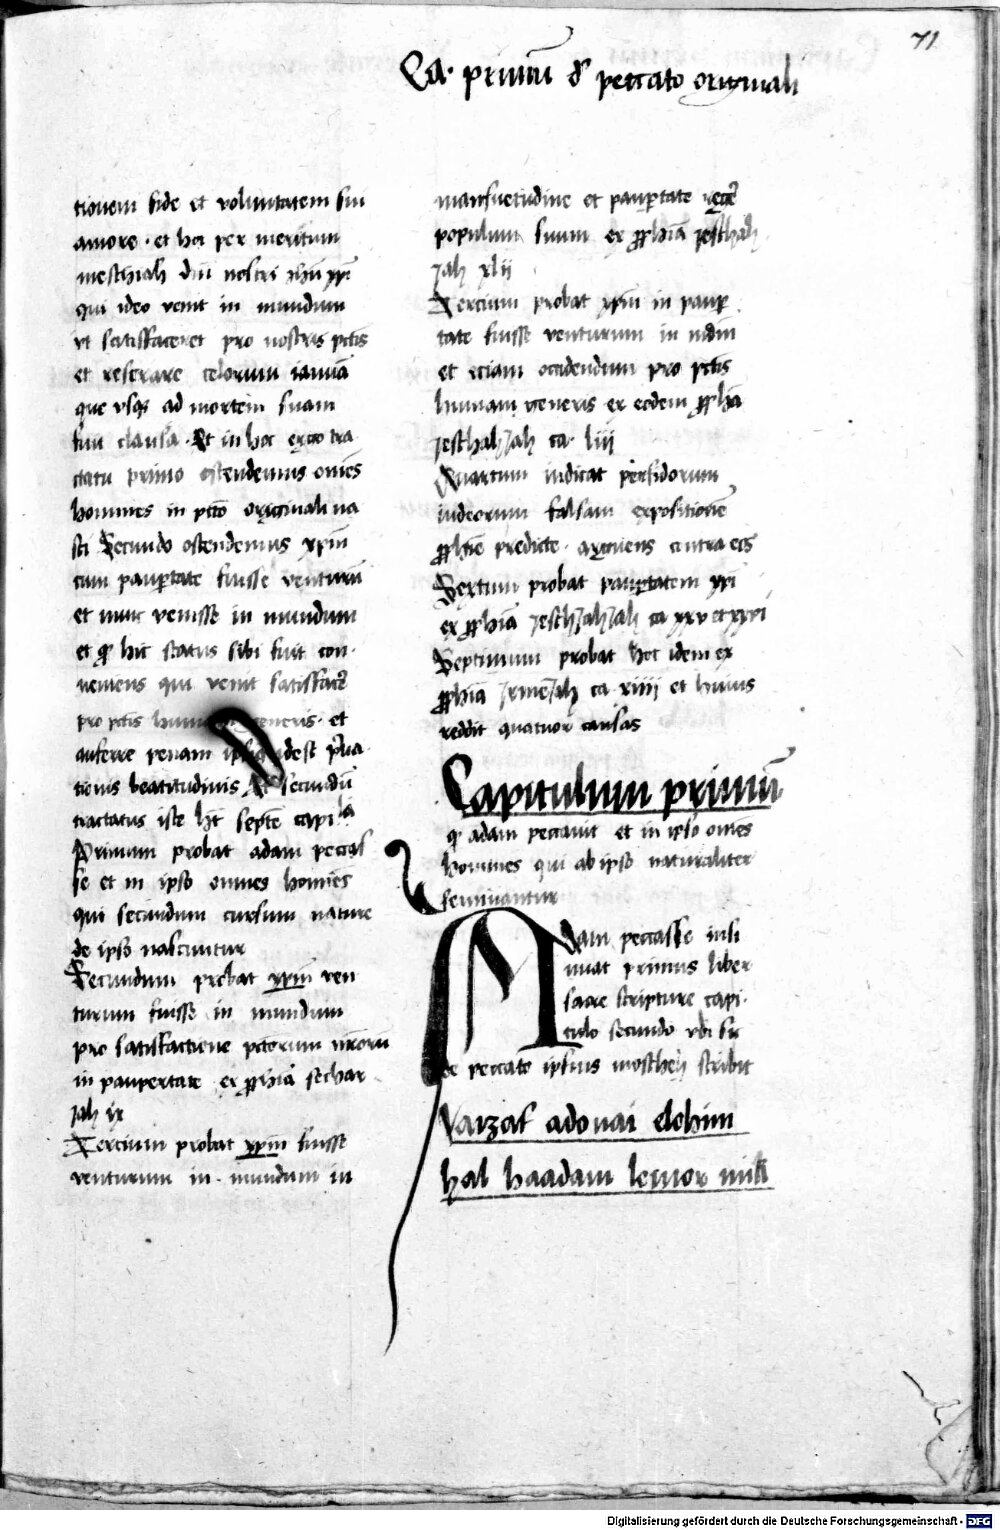 71
Ca. primũ d' peccato originali
tionem fide et voluntatem sui
amore · et hoc per meritum
meschiah dñi nostri ihũ xpi
qui ideo venit in mundum
vt satisfaceret pro nostris pctis
et reserare celorum ianuã
que vsq; ad mortem suam
fuit clausa · Et in hoc ergo tra
ctatu primo ostendemus om̃es
homines in pctõ originali na
sci Secundo ostendemus xpm̃
cum paup̱tate fuisse venturũ
et nunc venisse in mundum
et q̃ hic status sibi fuit con·
ueniens qui venit satisfacẽ
pro pctis humani generis · et
auferre penam ipsius idest p̃ua
tionis beatitudinis Et secundũ
tractatus iste h̃t septẽ capi^la
Primum probat adam peccas
se et in ipso omnes homĩes
qui secundum cursum nature
de ipso nascuntur
Secundum probat xpm̃ ven
turum fuisse in mundum
pro satisfactione pctorum nr̃orũ
in paupertate ex pp̃hia sechar
jah ix
Tercium probat xpm̃ fuisse
venturum in · mundum in
mansuetudine et paup̱tate regẽ
populum suum ex pp̃hiã jeschah
jah xlii
Tercium probat xpm̃ in paup̱
tate fuisse venturum in mdm̃
et eciam occidendum pro pctis
humani generis ex eodem pp̃hã
jeschahjah ca· liii
Quartum indicat perfidorum
iudeorum falsam expositionẽ
pp̃hiẽ predicte · arguens contra eos
Sextum probat paup̱tatem xpi
ex pp̃hiã jeschjahjah ca xxv et xxvi
Septimum probat hoc idem ex
pp̃hiã jrmejah ca xiiii et huius
reddit quatuor causas
Capitulum primũ
q̃ adam peccauit et in ipso om̃es
homines qui ab ipso naturaliter
seminantur
Adam peccasse insi
nuat primus liber
sacre scripture capi·
tulo secundo vbi sic
de peccato ipsius moscheh scribit
Vaizaf adonai elohim
hal haadam lemor mikl
Digitalisierung gefördert durch die Deutsche Forschungsgemeinschaft - DFG